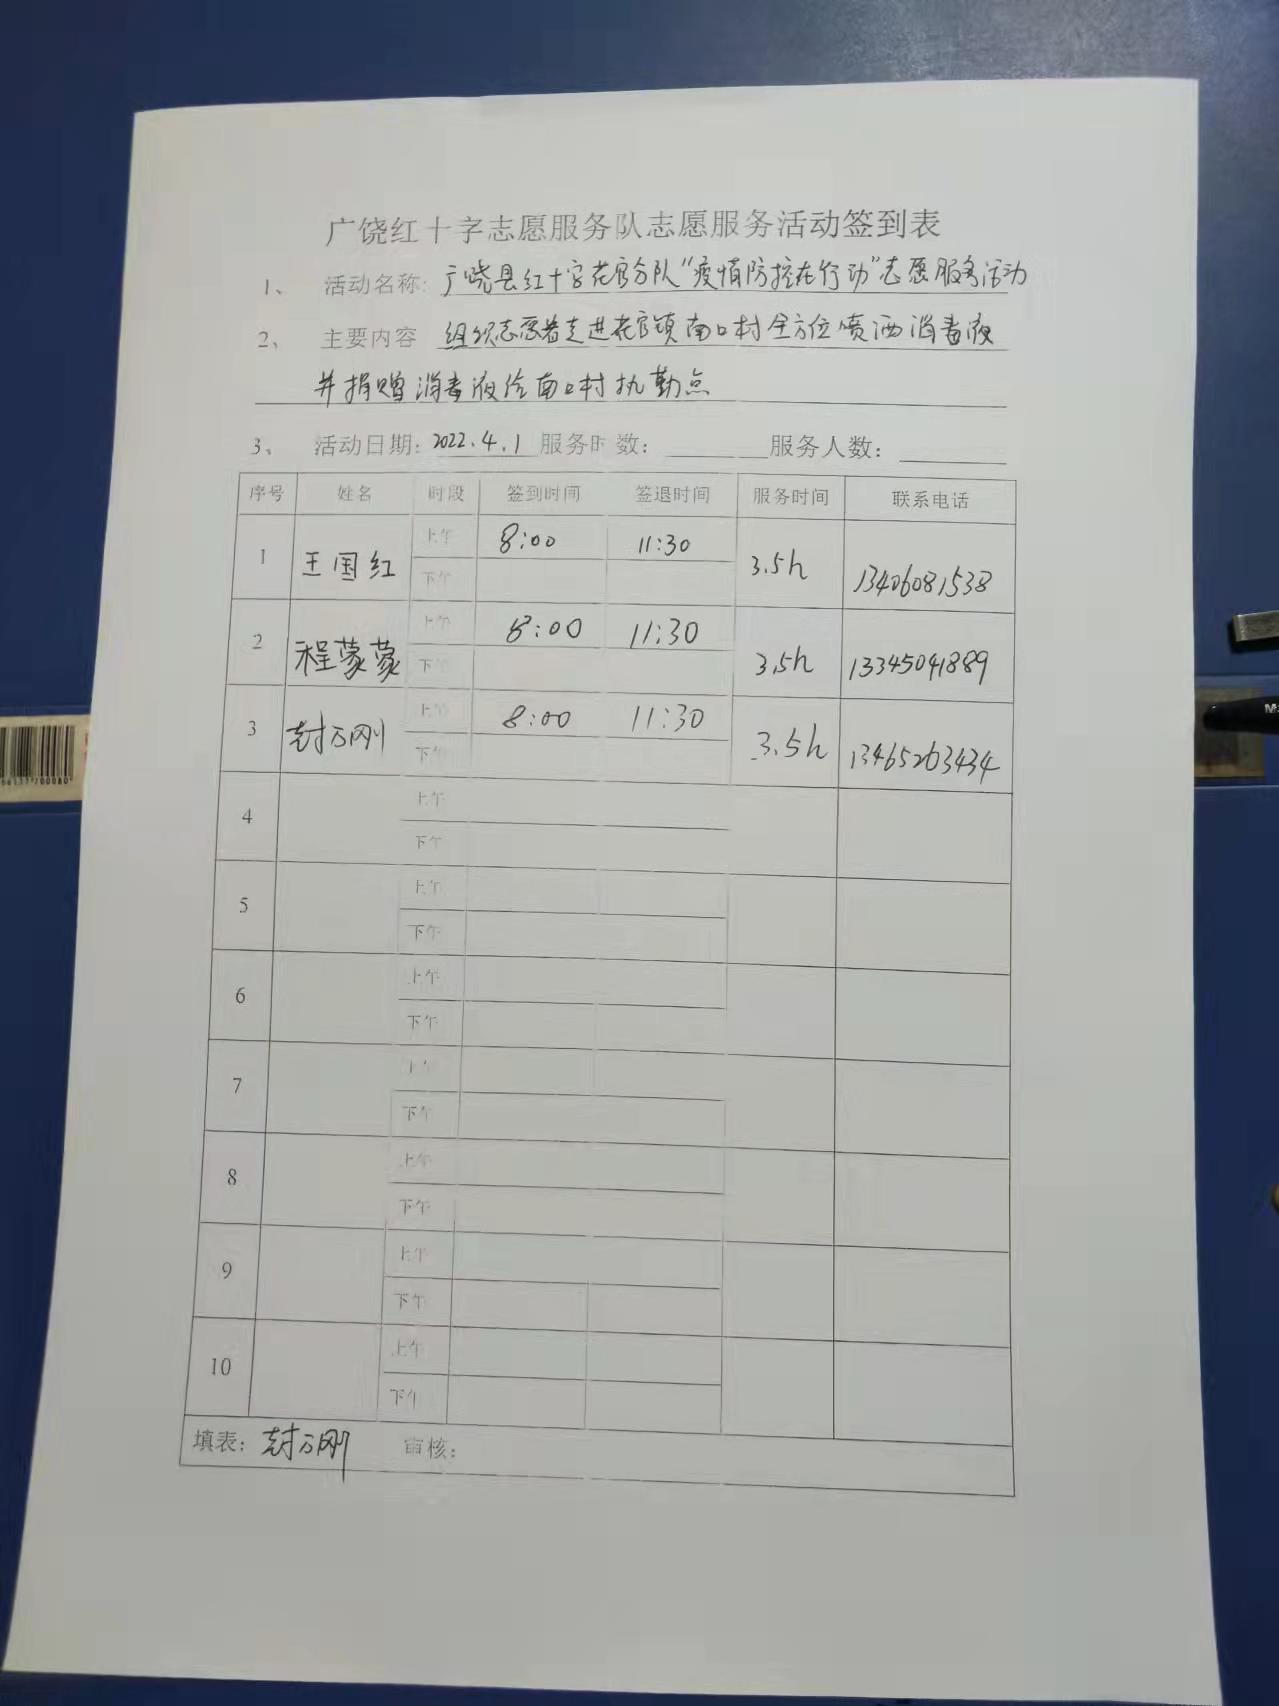 广饶红十字志愿服务队志愿服务活动签到表
1、 活动名称: 广饶县红十字花官分队“疫情防控在行动”志愿服务活动
2、 主要内容 组织志愿者走进花官镇南口村全方位喷洒消毒液
并捐赠消毒液给南口村执勤点
3、 活动日期: 2022.4.1 服务时数: 服务人数:
序号 姓名 时段 签到时间 签退时间 服务时间 联系电话
1 王国红 上午 8:00 11:30 3.5h 13406081538
下午
2 程蒙蒙 上午 8:00 11:30 3.5h 13345041889
下午
3 封万刚 上午 8:00 11:30 3.5h 13465263434
下午
4 上午
下午
5 上午
下午
6 上午
下午
7 上午
下午
8 上午
下午
9 上午
下午
10 上午
下午
填表: 封万刚 审核: